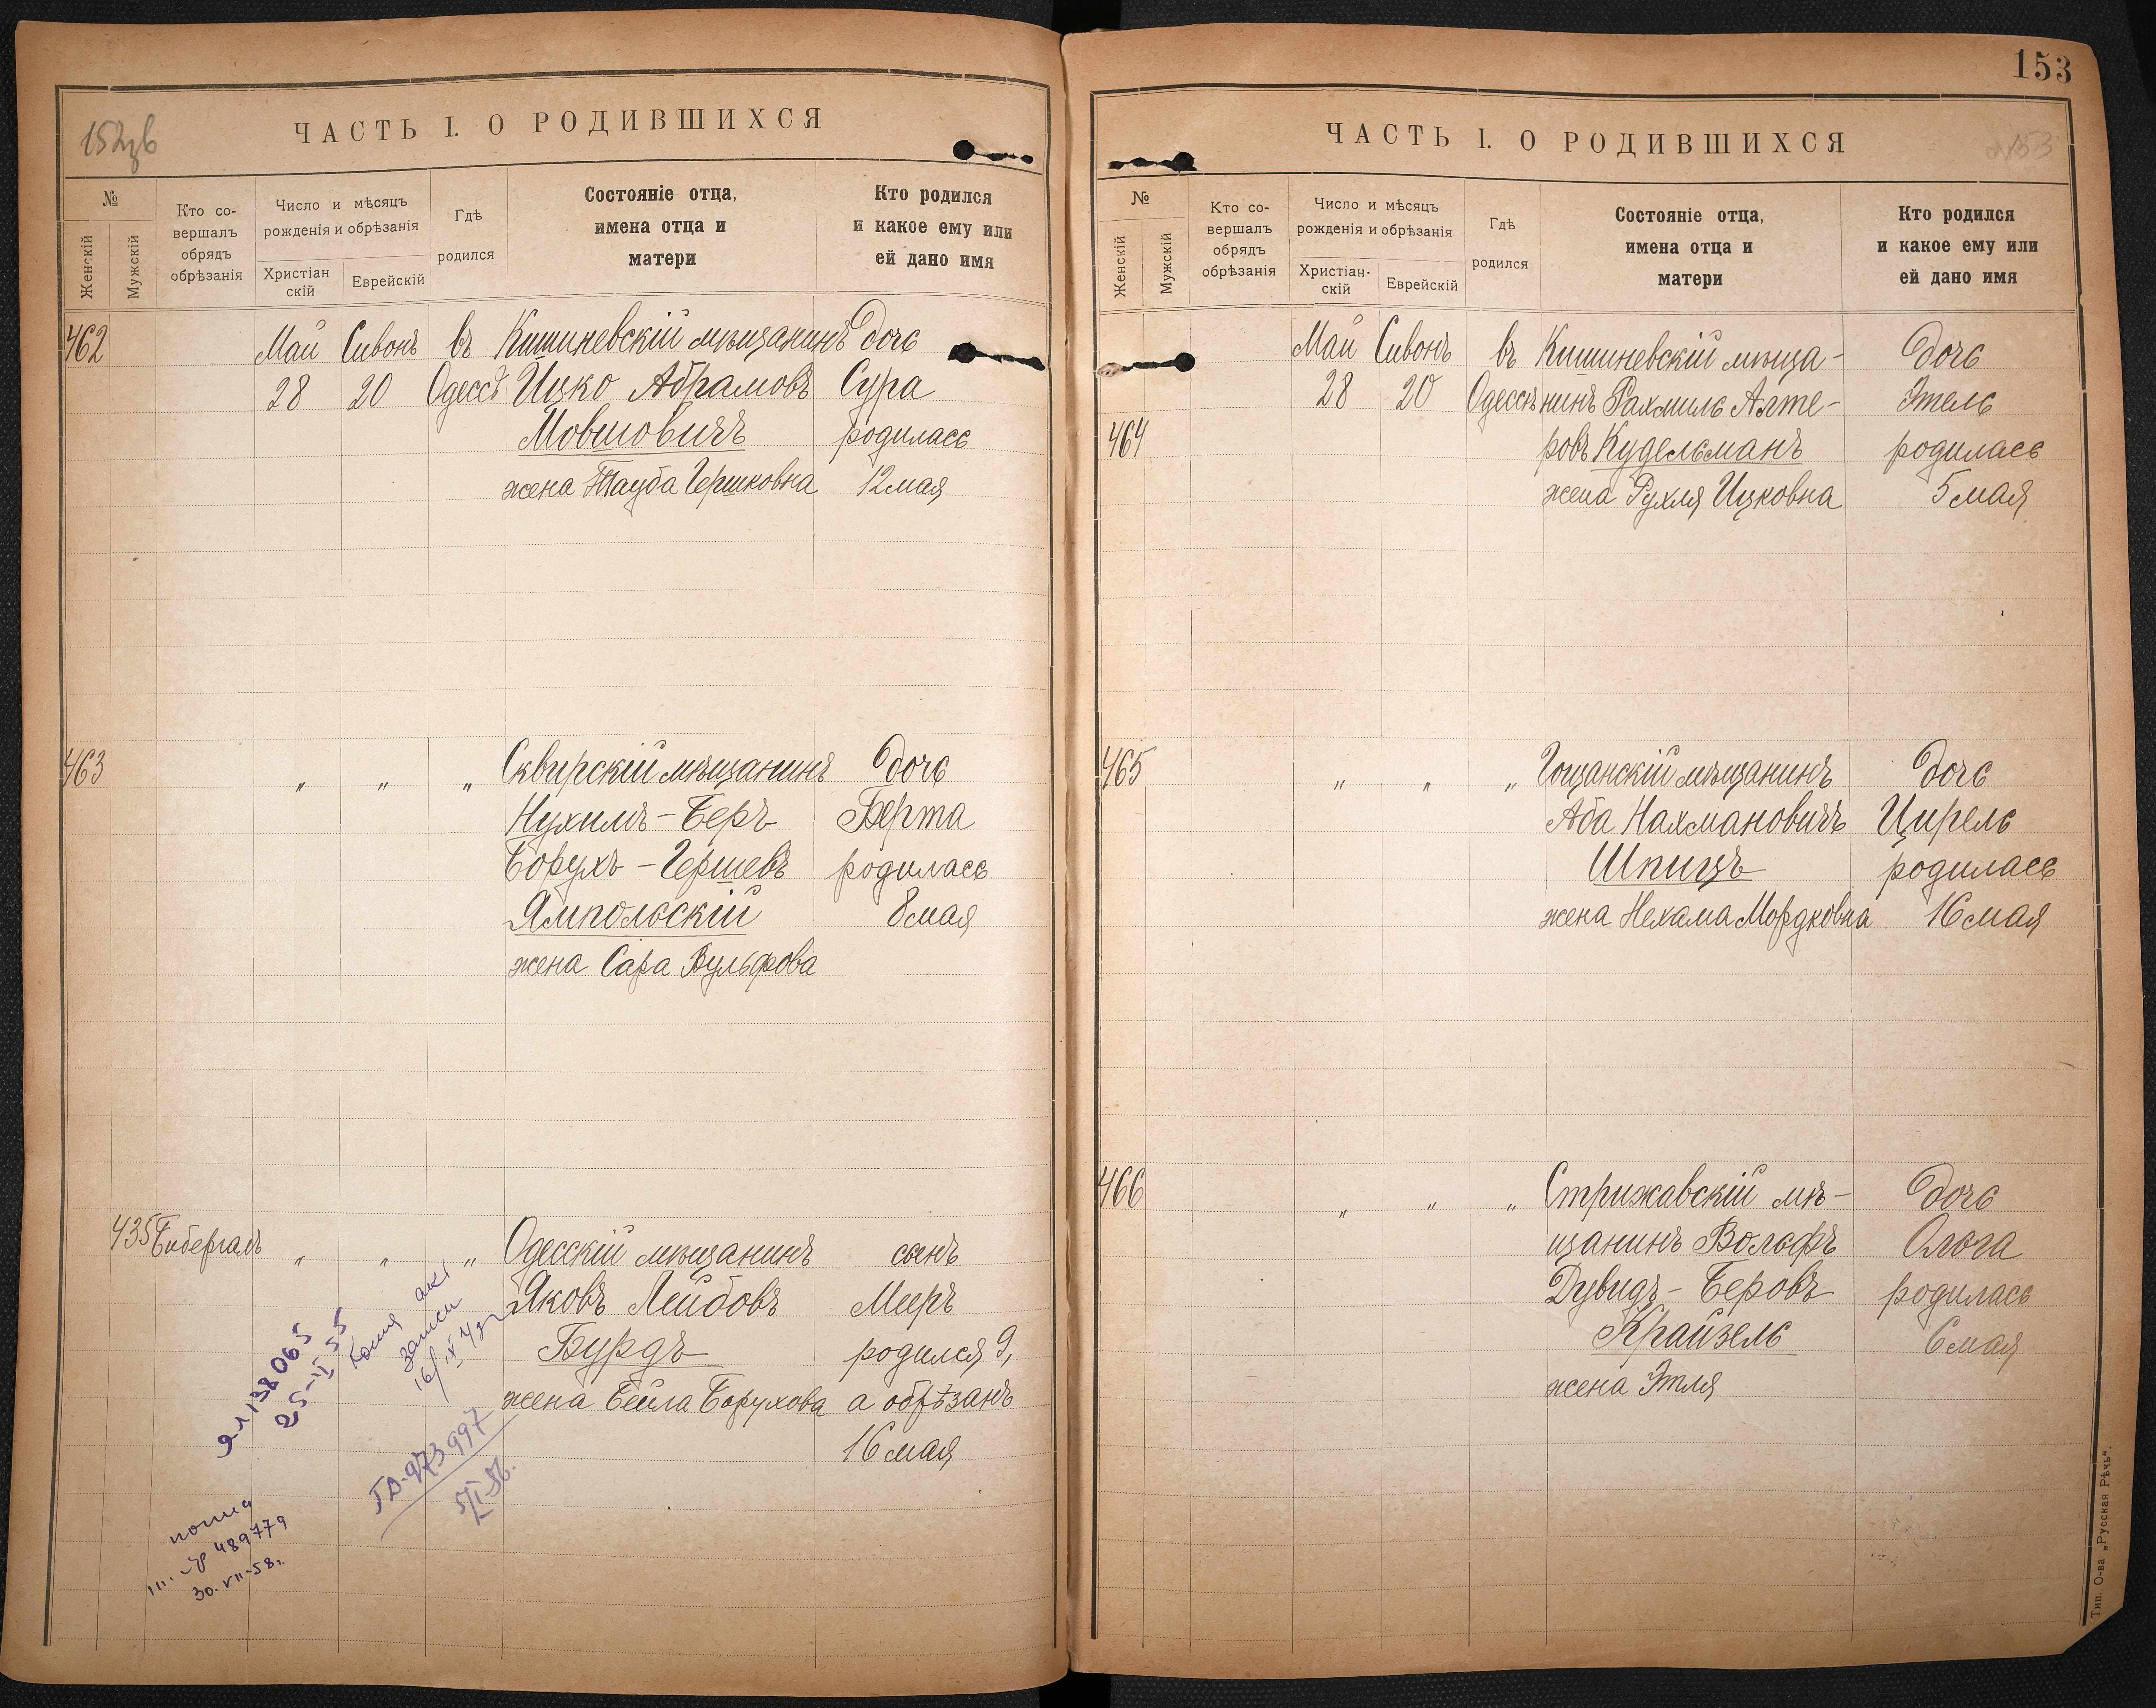 152об
ЧАСТЬ I. О РОДИВШИХСЯ
№
Женскій
Мужскій
Кто со-
вершалъ
обрядъ
обрѣзанія
Число и мѣсяцъ
рожденія и обрѣзанія
Христіан
скій
Еврейскій
Гдѣ
родился
Состояніе отца,
имена отца и
матери
Кто родился
и какое ему или
ей дано имя
462 Май Сивонъ въ Кишиневскій мѣщанинъ дочь
28 20 Одессѣ Ицко Абрамовъ Сура
Мовшовичъ родилась
жена Тауба Гершковна 12 мая
463 " " " Сквирскій мѣщанинъ дочь
Нухимъ-Беръ Берта
Борухъ-Гершевъ родилась
Ямпольскій 8 мая
жена Сара Вульфова
435 Бибергалъ " " " Одесскій мѣщанинъ сынъ
Яковъ Лейбовъ Мееръ
Бурдъ родился 9,
жена Бейла Борухова а обрѣзанъ
16 мая
138065
25-II 55
Копия акт
записи
ГД-973997
5/II-56.
489779
30.VII-58г.
153
ЧАСТЬ I. О РОДИВШИХСЯ
153
№
Женскій
Мужскій
Кто со-
вершалъ
обрядъ
обрѣзанія
Число и мѣсяцъ
рожденія и обрѣзанія
Христіан-
скій
Еврейскій
Гдѣ
родился
Состояніе отца,
имена отца и
матери
Кто родился
и какое ему или
ей дано имя
Май Сивонъ въ Кишиневскій мѣща- дочь
28 20 Одессѣ нинъ Рахмиль Алте- Этель
464 ровъ Кудельманъ родилась
жена Рухля Ицковна 5 мая
465 " " " Гощанскій мѣщанинъ дочь
Аба Нахмановичъ Цирель
Шпицъ родилась
жена Нехама Мордковна 16 мая
466 " " " Стрижавскій мѣ- дочь
щанинъ Вольфъ Ольга
Дувидъ-Беровъ родилась
Крайзель 6 мая
жена Этля
Тип. О-ва „Русская Рѣчь“.